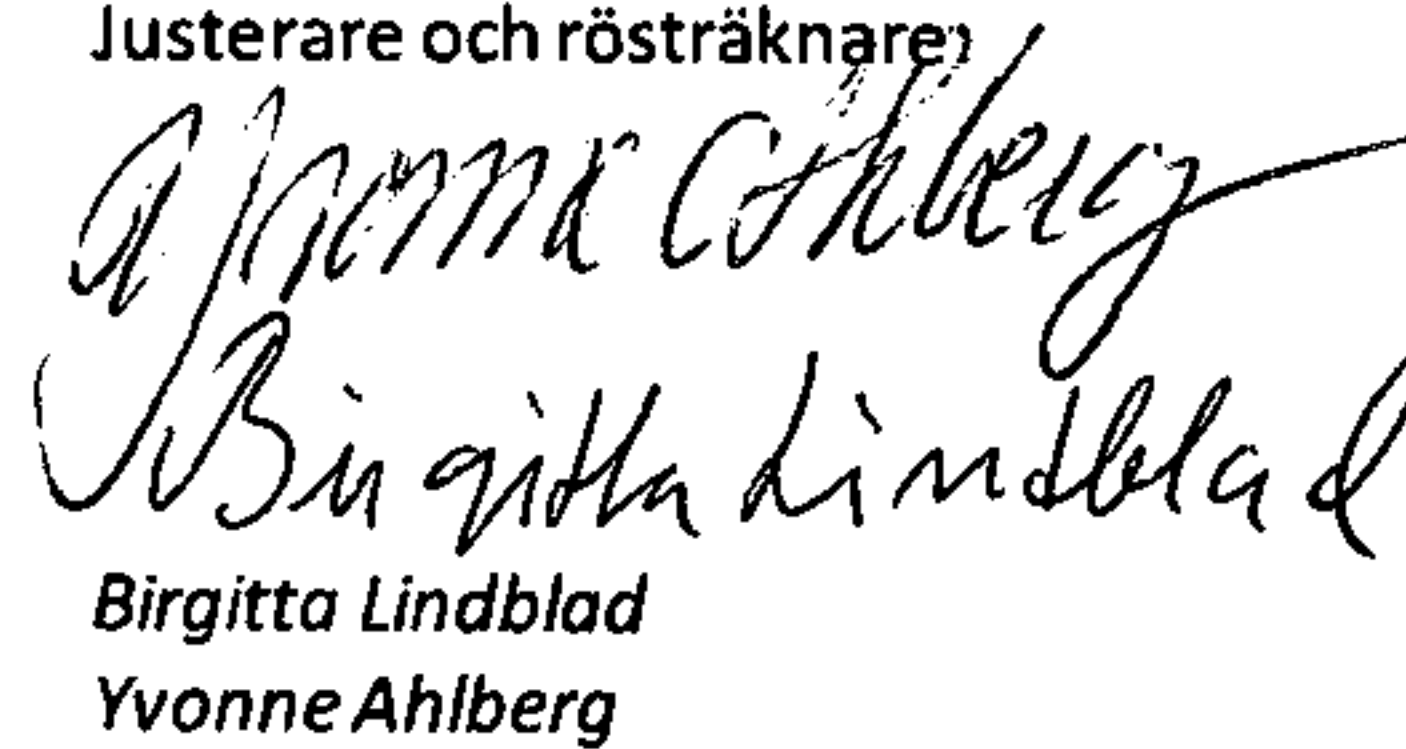 Justerare och rösträknare
Yvonne Ahlberg
Birgitta Lindblad
Birgitta Lindblad
Yvonne Ahlberg